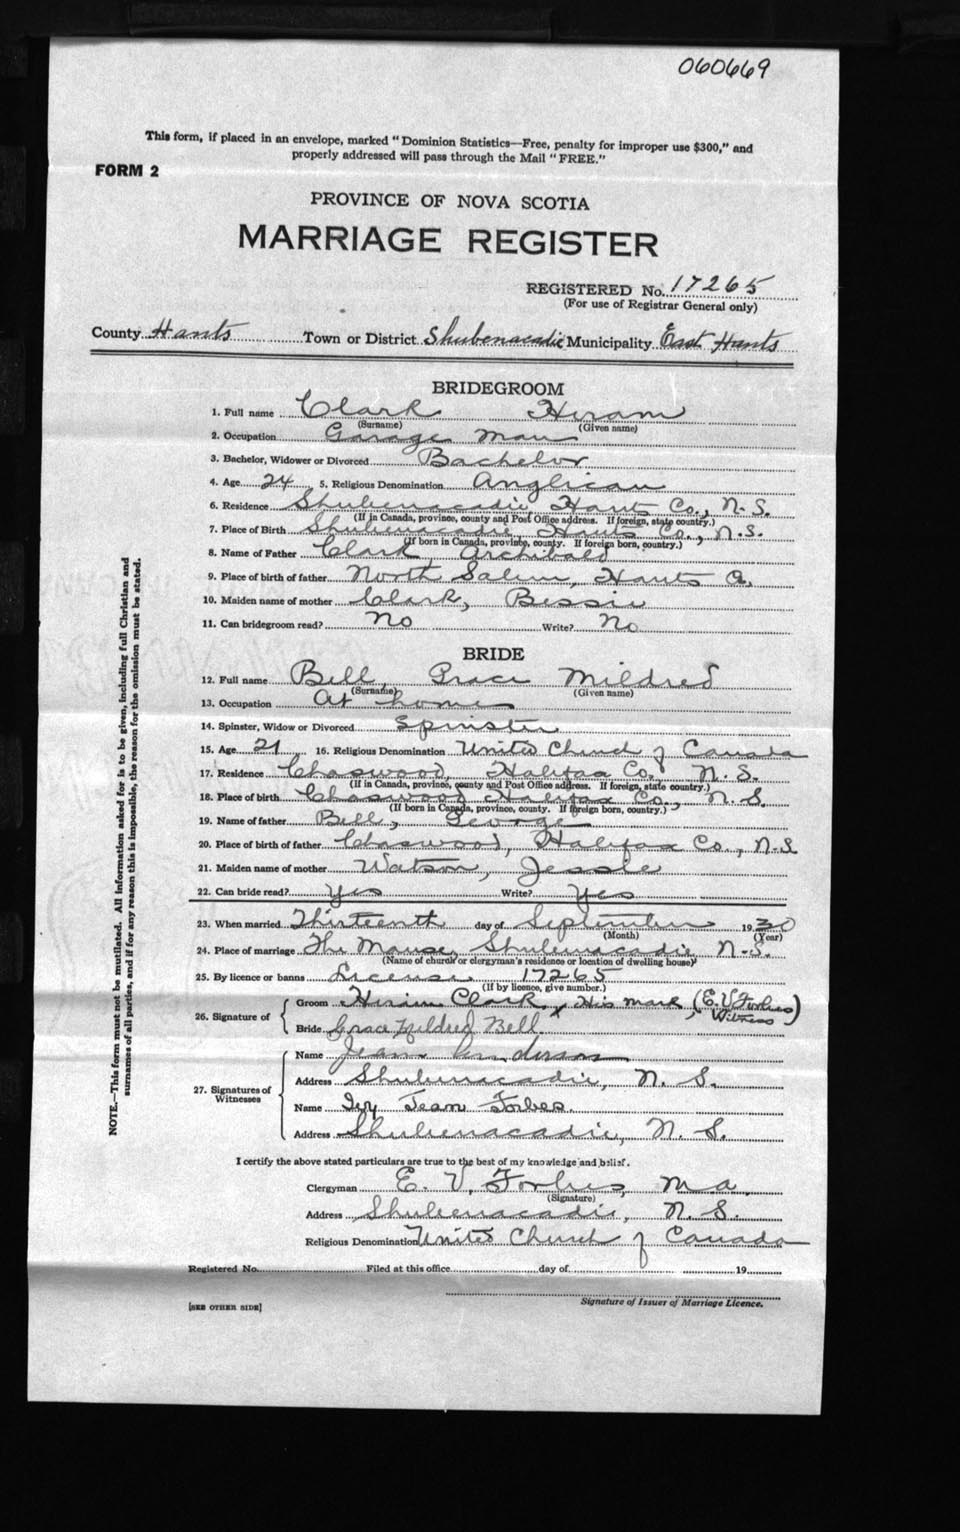 060669
This form, if placed in an envelope, marked "Dominion Statistics—Free, penalty for improper use $300," and
properly addressed will pass through the Mail "FREE."
FORM 2
PROVINCE OF NOVA SCOTIA
MARRIAGE REGISTER
REGISTERED No. 17265
(For use of Registrar General only)
County Hants Town or District Shubenacadie Municipality East Hants
BRIDEGROOM
1. Full name Clark Hiram
(Surname) (Given name)
2. Occupation Garage Man
3. Bachelor, Widower or Divorced Bachelor
4. Age 24 5. Religious Denomination Anglican
6. Residence Shubenacadie Hants Co., N.S.
(If in Canada, province, county and Post Office address. If foreign, state country.)
7. Place of Birth Shubenacadie, Hants Co., N.S.
(If born in Canada, province, county. If foreign born, country.)
8. Name of Father Clark Archibald
9. Place of birth of father North Salem, Hants Co.
10. Maiden name of mother Clark, Bessie
11. Can bridegroom read? No Write? No
BRIDE
12. Full name Bell, Grace Mildred
(Surname) (Given name)
13. Occupation At home
14. Spinster, Widow or Divorced Spinster
15. Age 21 16. Religious Denomination United Church of Canada
17. Residence Chaswood, Halifax Co., N.S.
(If in Canada, province, county and Post Office address. If foreign, state country.)
18. Place of birth Chaswood Halifax Co., N.S.
(If born in Canada, province, county. If foreign born, country.)
19. Name of father Bell, George
20. Place of birth of father Chaswood, Halifax Co., N.S
21. Maiden name of mother Watson, Jessie
22. Can bride read? Yes Write? Yes
23. When married Thirteenth day of September 1930
(Month) (Year)
24. Place of marriage The Manse, Shubenacadie, N.S.
(Name of church or clergyman's residence or location of dwelling house)
25. By licence or banns License 17265
(If by licence, give number.)
26. Signature of Groom Hiram Clark, x His mark, (E.V. Forbes Witness)
Bride Grace Mildred Bell
27. Signatures of Witnesses
Name Jean Anderson
Address Shubenacadie, N.S.
Name Ivy Jean Forbes.
Address Shubenacadie, N.S.
I certify the above stated particulars are true to the best of my knowledge and belief.
Clergyman E. V. Forbes, M.A.
(Signature)
Address Shubenacadie, N.S.
Religious Denomination United Church of Canada
Registered No. Filed at this office day of 19
Signature of Issuer of Marriage Licence.
[SEE OTHER SIDE]
NOTE.—This form must not be mutilated. All information asked for is to be given, including full Christian and
surnames of all parties, and if for any reason this is impossible, the reason for the omission must be stated.